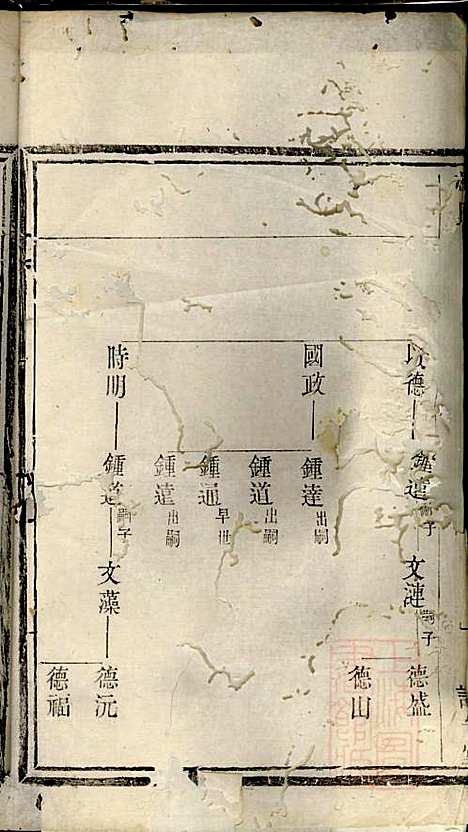 以德
鍾達嗣子
文漣嗣子
德盛
德山
國政
鍾達出嗣
鍾道出嗣
鍾通早世
鍾遠出嗣
時明
鍾遠嗣子
文藻
德沅
德福